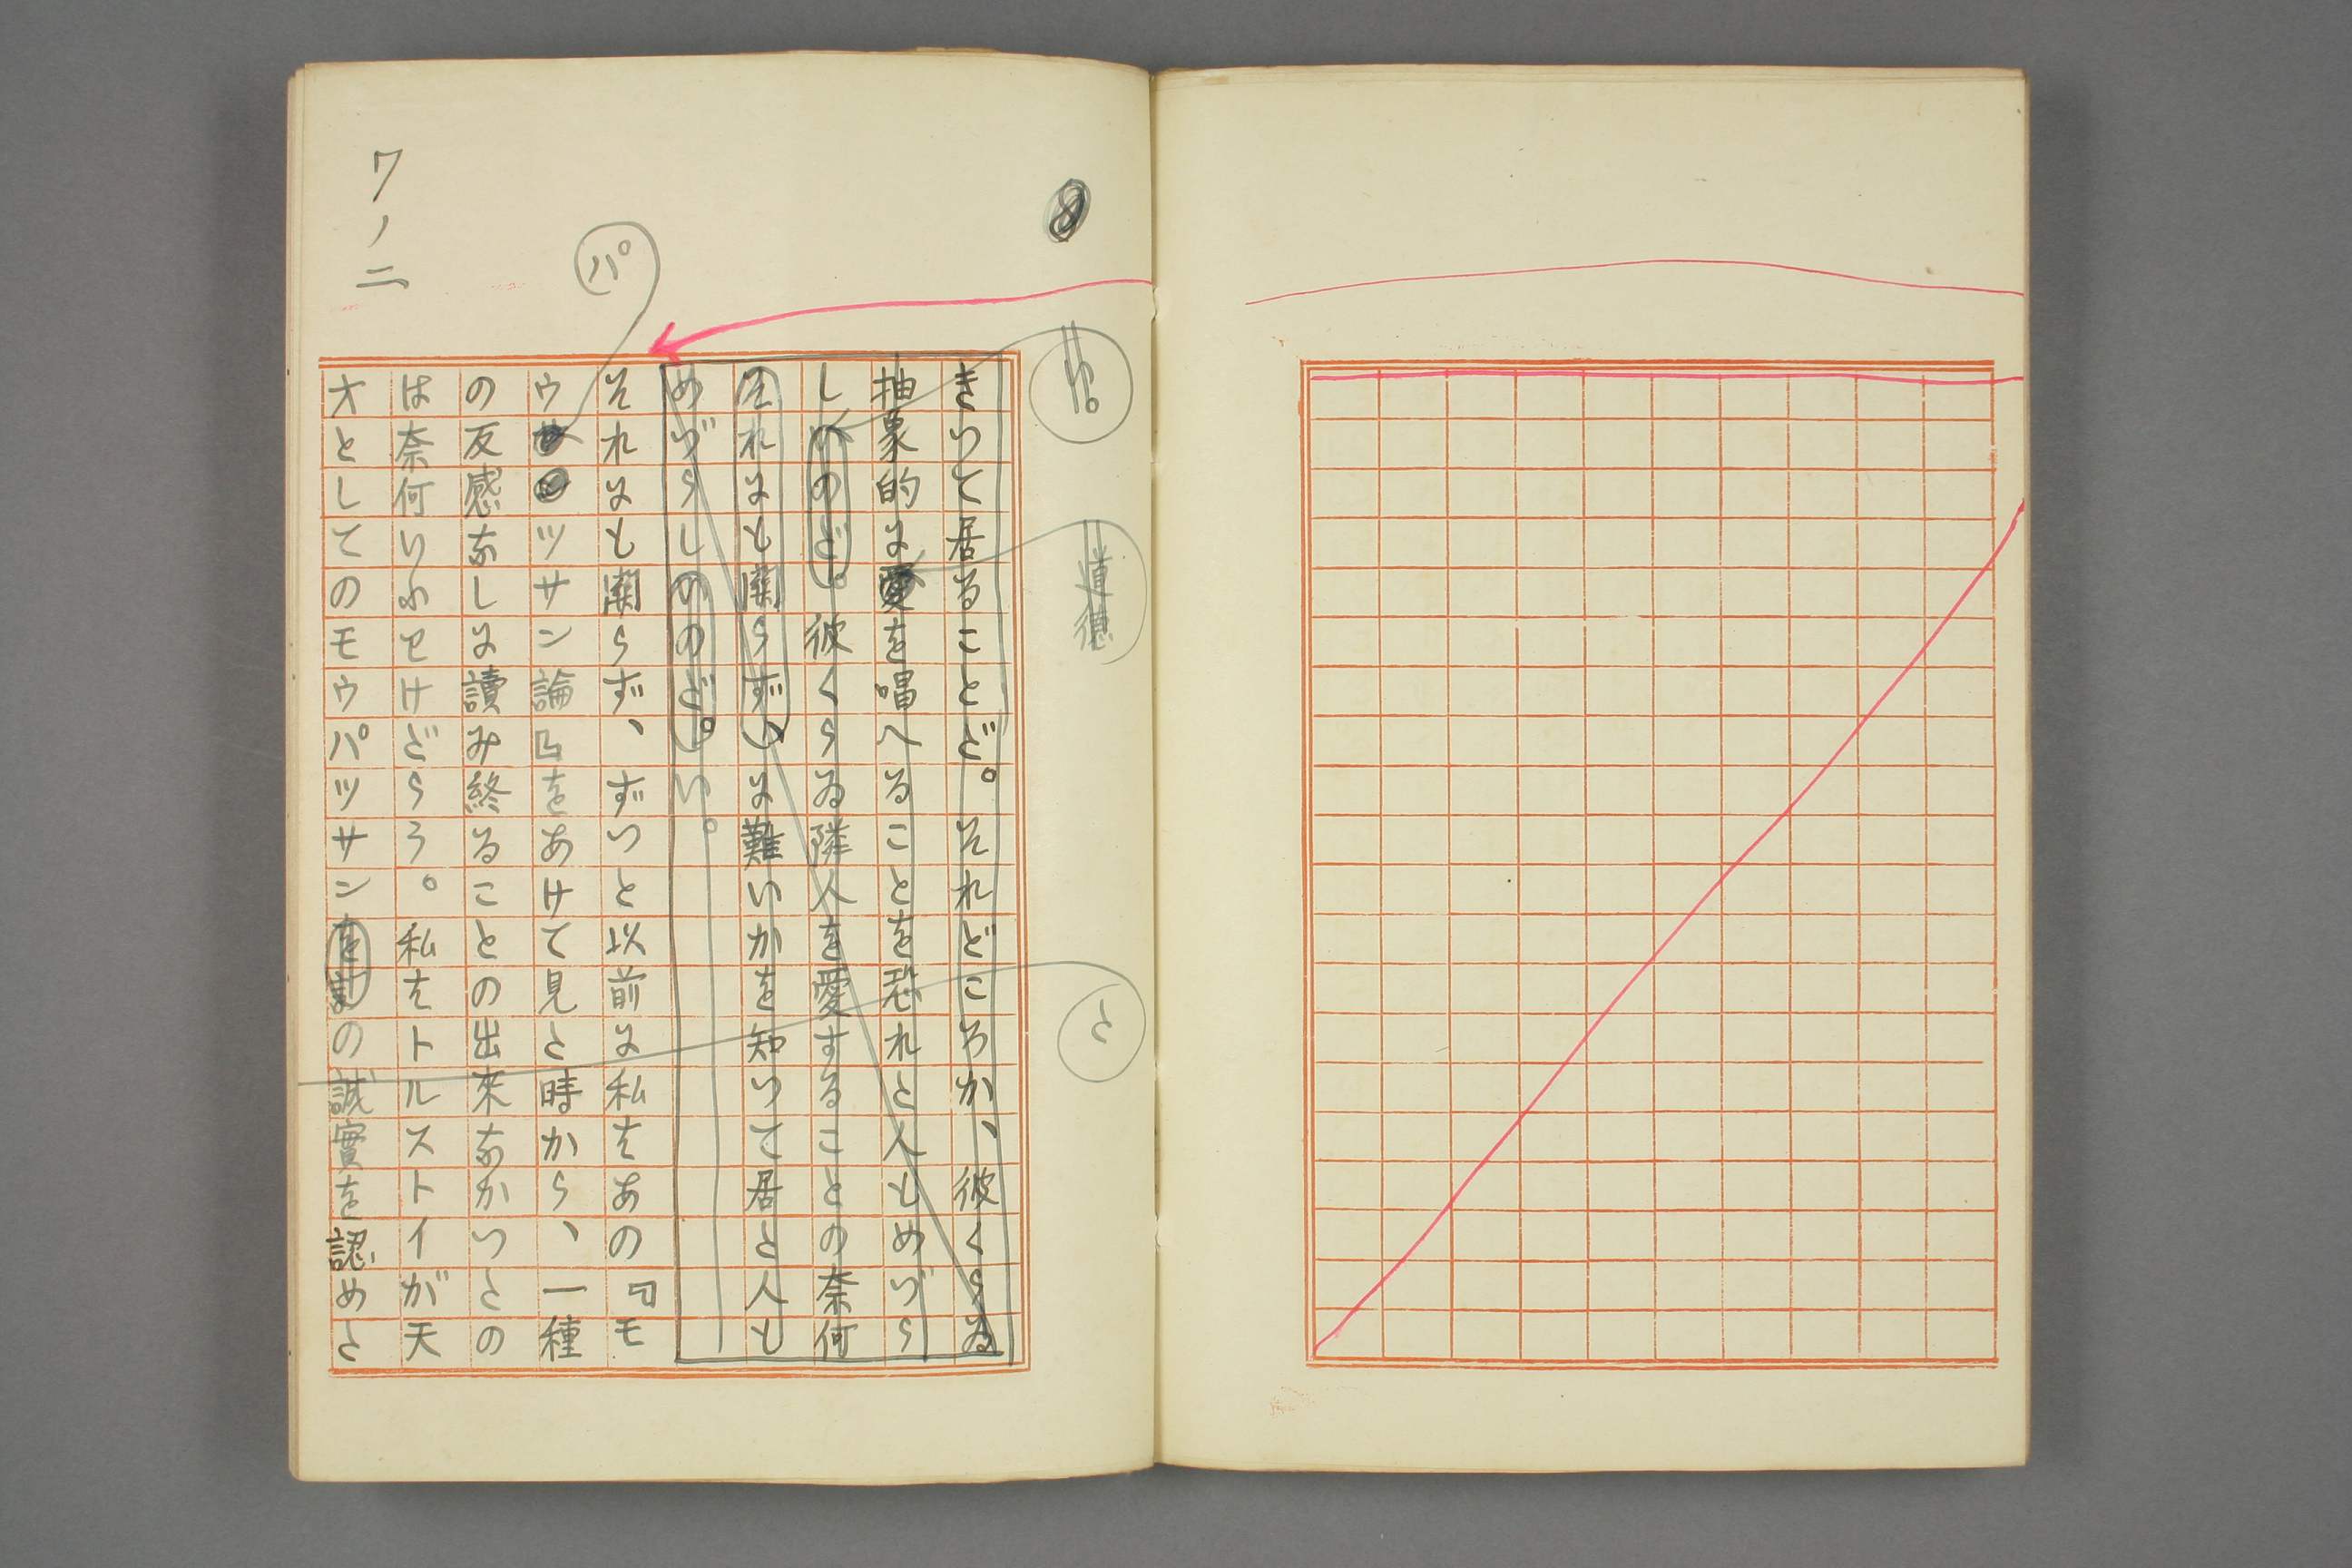 8
きつて居ることだ。それどころか、彼くらゐ
抽象的に愛を唱へることを恐れた人もめづら
しいのだ。彼くらゐ隣人を愛することの奈何
それにも關らず、に難いかを知つて居た人も
めづらしいのだ。い。
それにも關らず、ずつと以前に私はあの『モ
ウツサン論』をあけて見た時から、一種
の反感なしに讀み終ることの出來なかつたの
は奈何いふわけだらう。私はトルストイが天
才としてのモウパツサンをまの誠實を認めた
い。
道德
た
パ
ワノ二